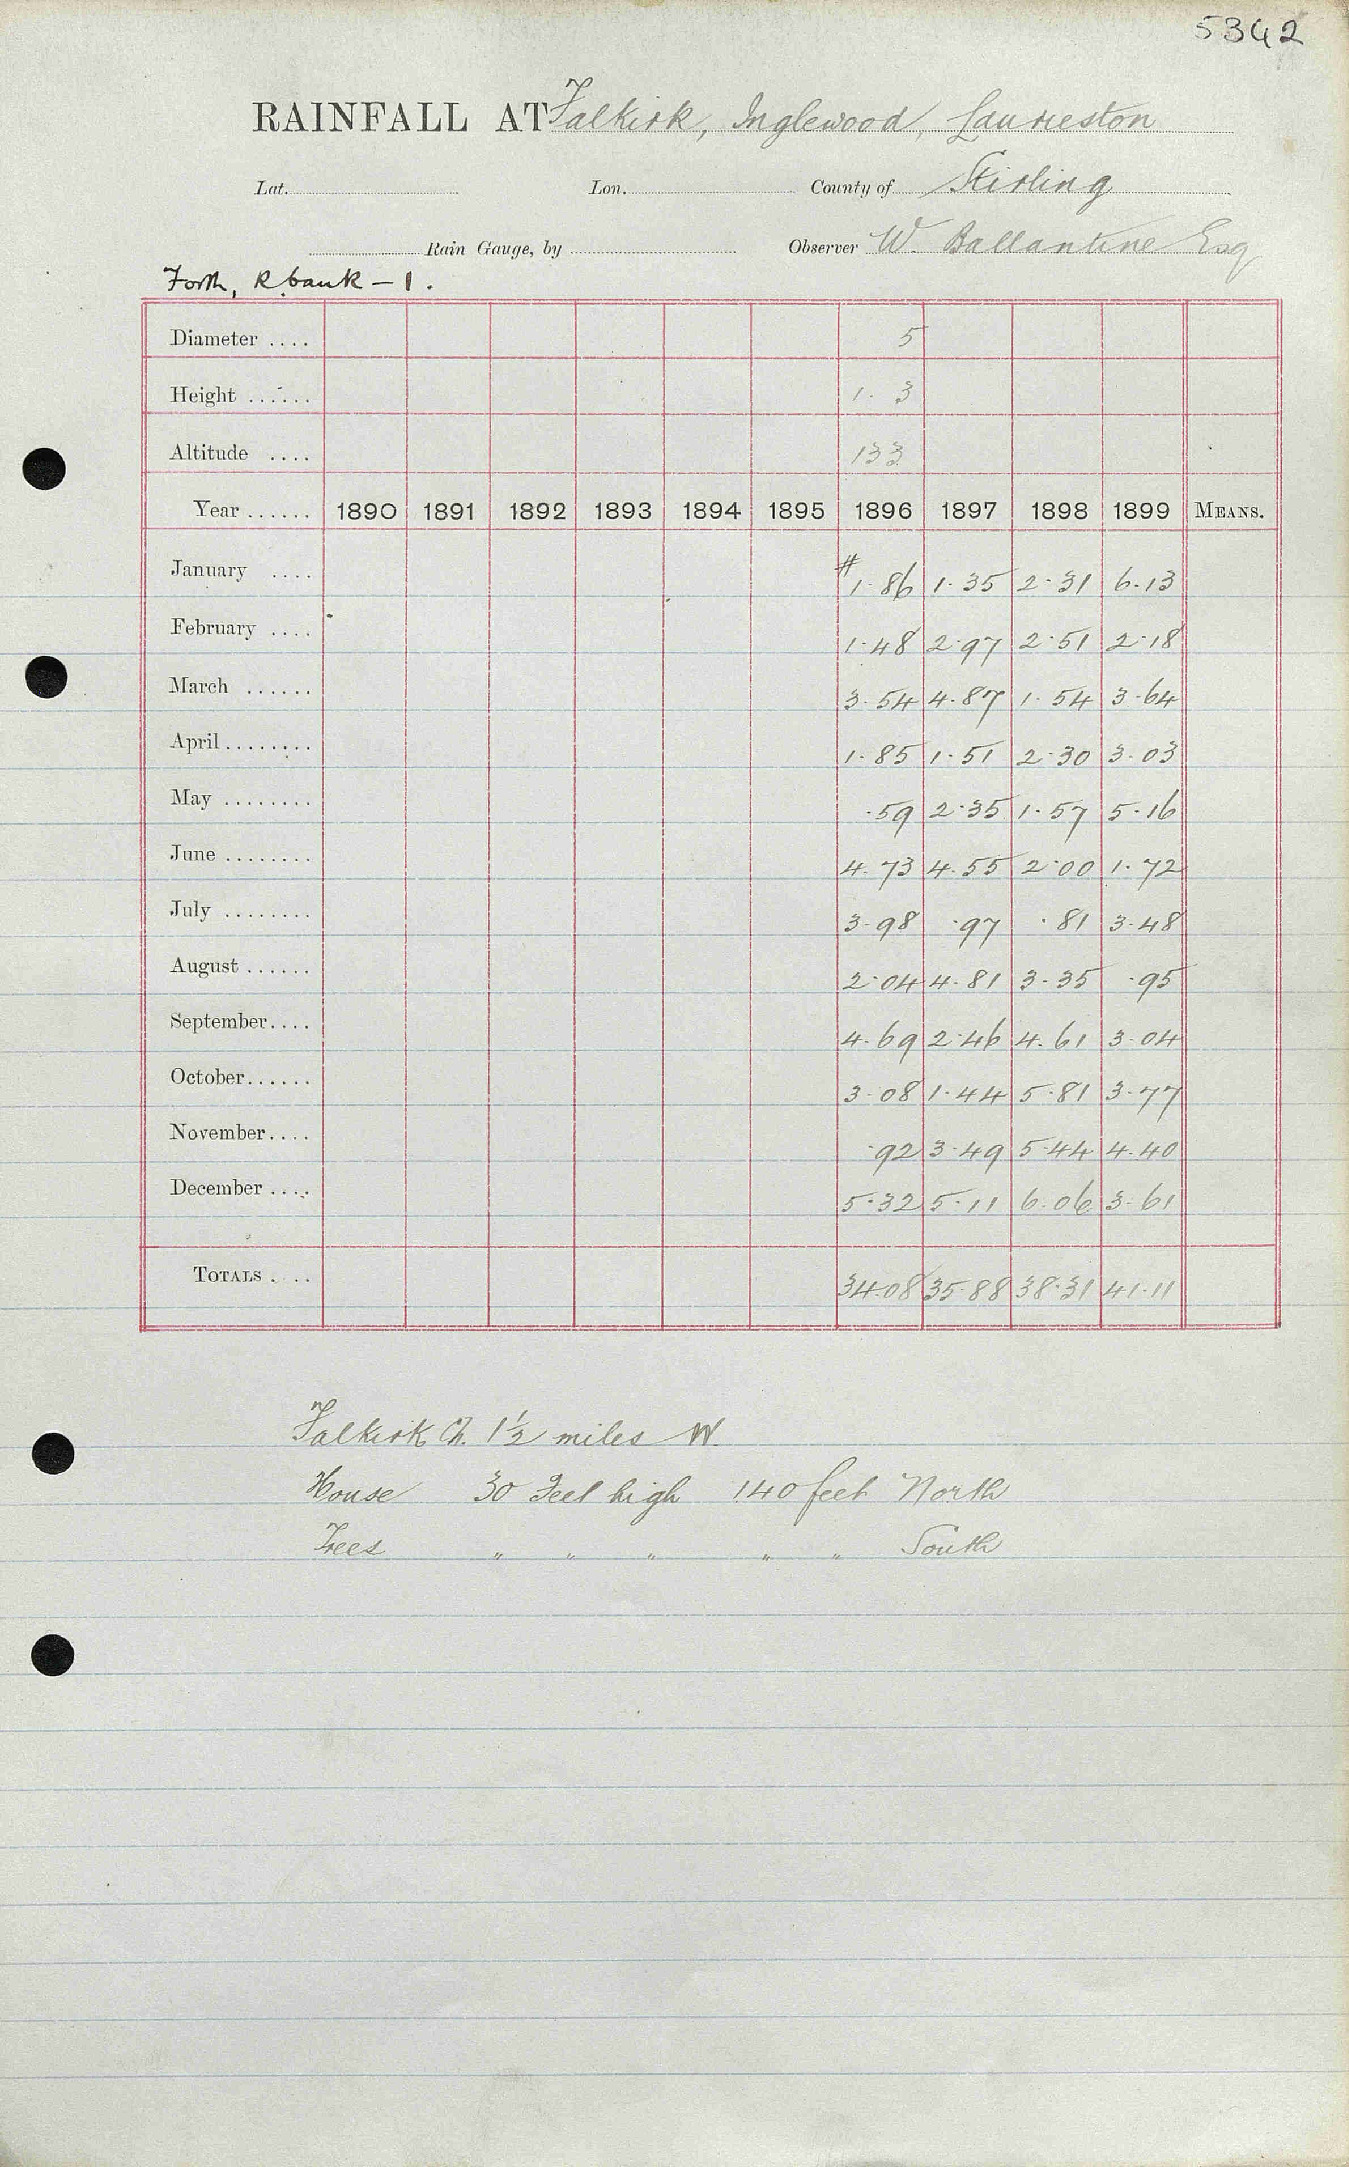 5342
RAINFALL AT Falkirk, Inglewood, Laurieston
Lat. Lon. County of Stirling
Rain Gauge, by Observer W. Ballantine Esq
Forth, R bank - 1.
Diameter .... 5
Height ...... 1. 3
Altitude .... 133
Year ...... 1890 1891 1892 1893 1894 1895 1896 1897 1898 1899 MEANS.
January .... # 1.86 1.35 2.31 6.13
February .... 1.48 2.97 2.51 2.18
March ...... 3.54 4.87 1.54 3.64
April ........ 1.85 1.51 2.30 3.03
May ........ .59 2.35 1.57 5.16
June ........ 4.73 4.55 2.00 1.72
July ........ 3.98 .97 .81 3.48
August ...... 2.04 4.81 3.35 .95
September.... 4.69 2.46 4.61 3.04
October...... 3.08 1.44 5.81 3.77
November.... .92 3.49 5.44 4.40
December .... 5.32 5.11 6.06 3.61
TOTALS .... 34.08 35.88 38.31 41.11
Falkirk Ch. 1½ miles W.
House 30 Feet high 140 feet North
Trees " " " " " South